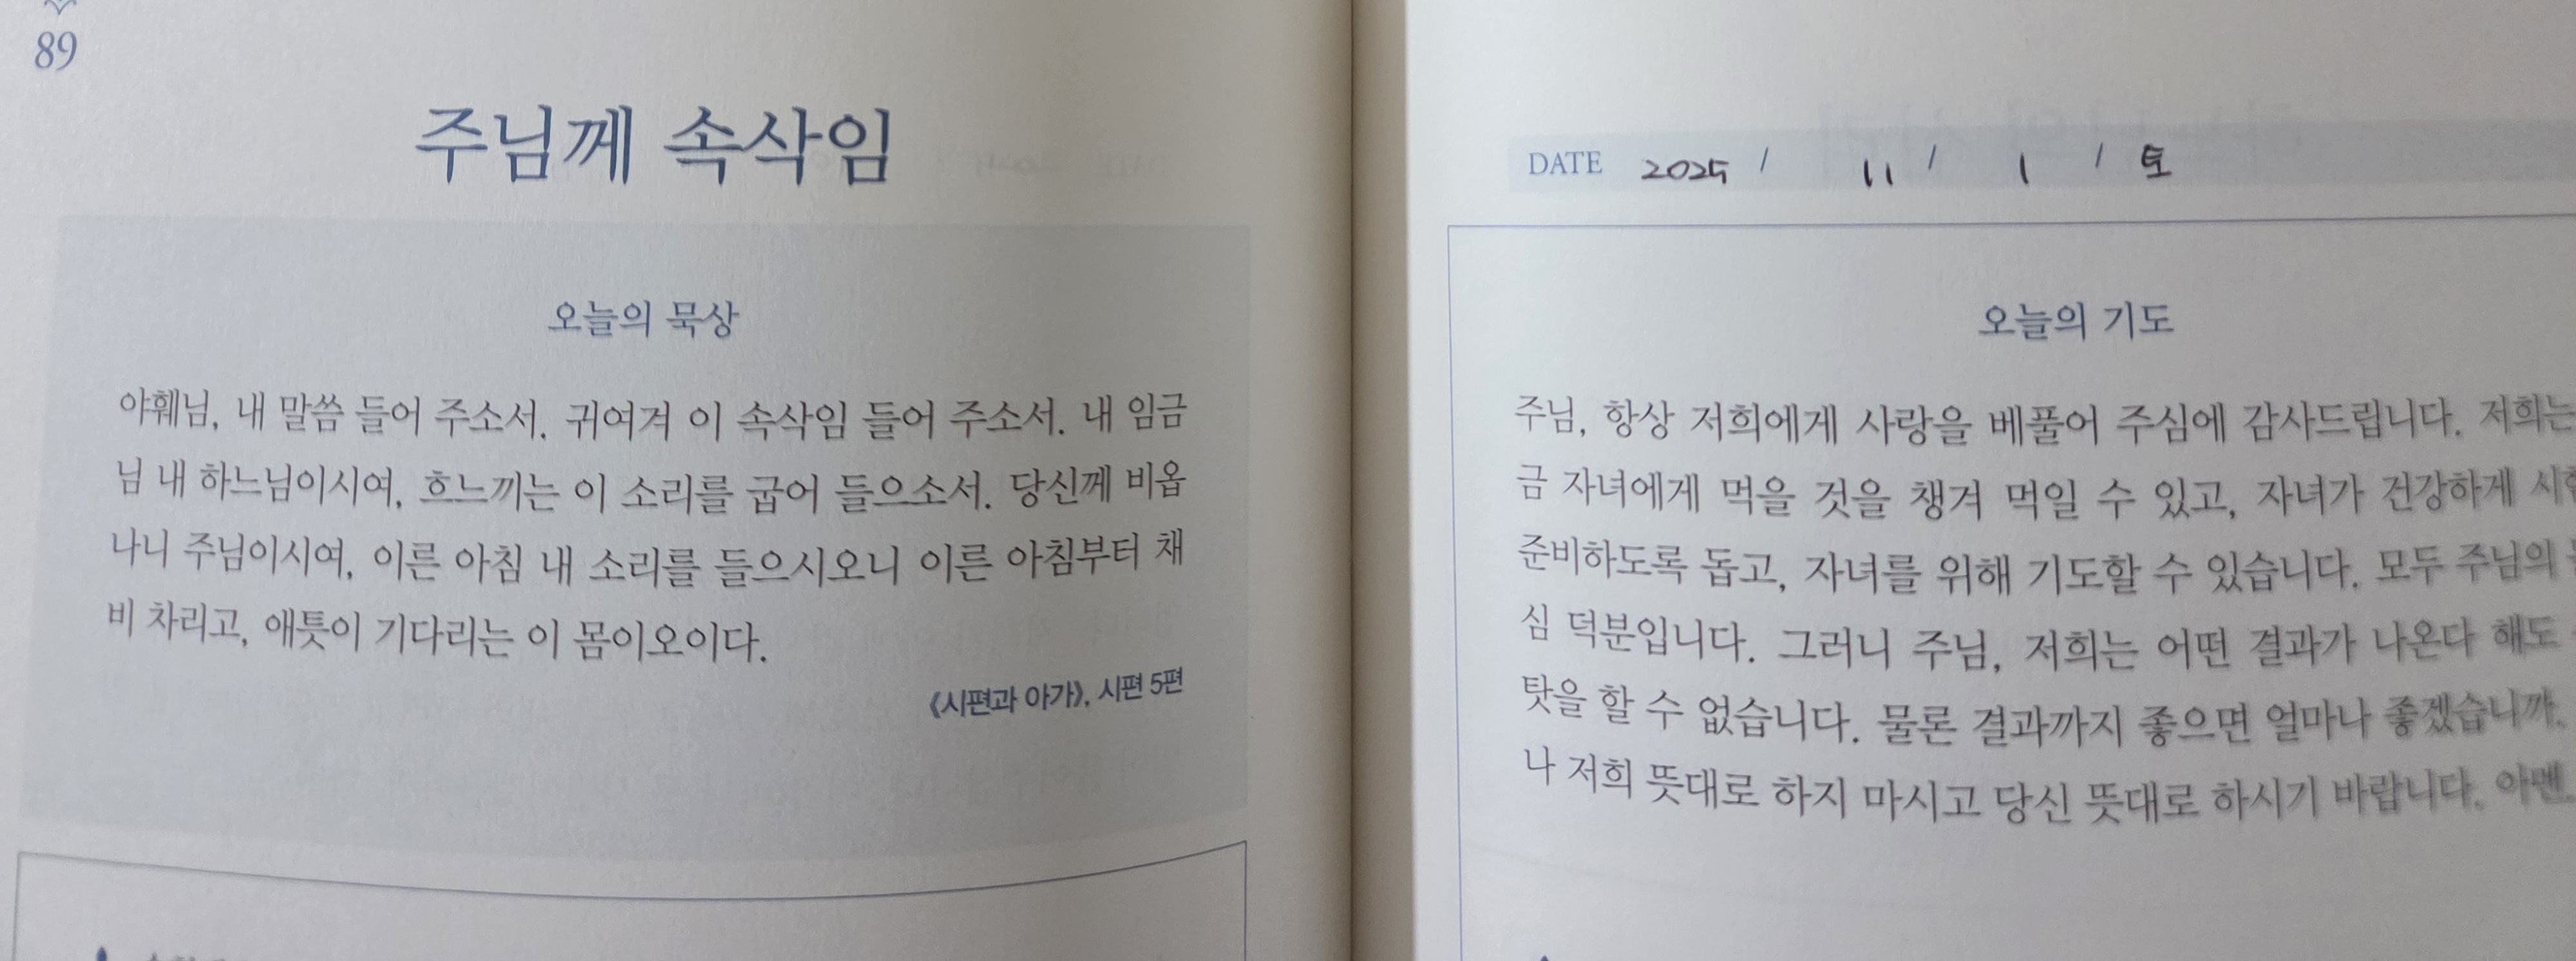 89
주님께 속삭임
오늘의 묵상
야훼님, 내 말씀 들어 주소서. 귀여겨 이 속삭임 들어 주소서. 내 임금
님 내 하느님이시여, 흐느끼는 이 소리를 굽어 들으소서. 당신께 비옵
나니 주님이시여, 이른 아침 내 소리를 들으시오니 이른 아침부터 채
비 차리고, 애틋이 기다리는 이 몸이오이다.
《시편과 아가》, 시편 5편
DATE 2025 / 11 / 1 / 토
오늘의 기도
주님, 항상 저희에게 사랑을 베풀어 주심에 감사드립니다. 저희는
금 자녀에게 먹을 것을 챙겨 먹일 수 있고, 자녀가 건강하게
준비하도록 돕고, 자녀를 위해 기도할 수 있습니다. 모두 주님의
심 덕분입니다. 그러니 주님, 저희는 어떤 결과가 나온다 해도
탓을 할 수 없습니다. 물론 결과까지 좋으면 얼마나 좋겠습니까.
나 저희 뜻대로 하지 마시고 당신 뜻대로 하시기 바랍니다. 아멘.